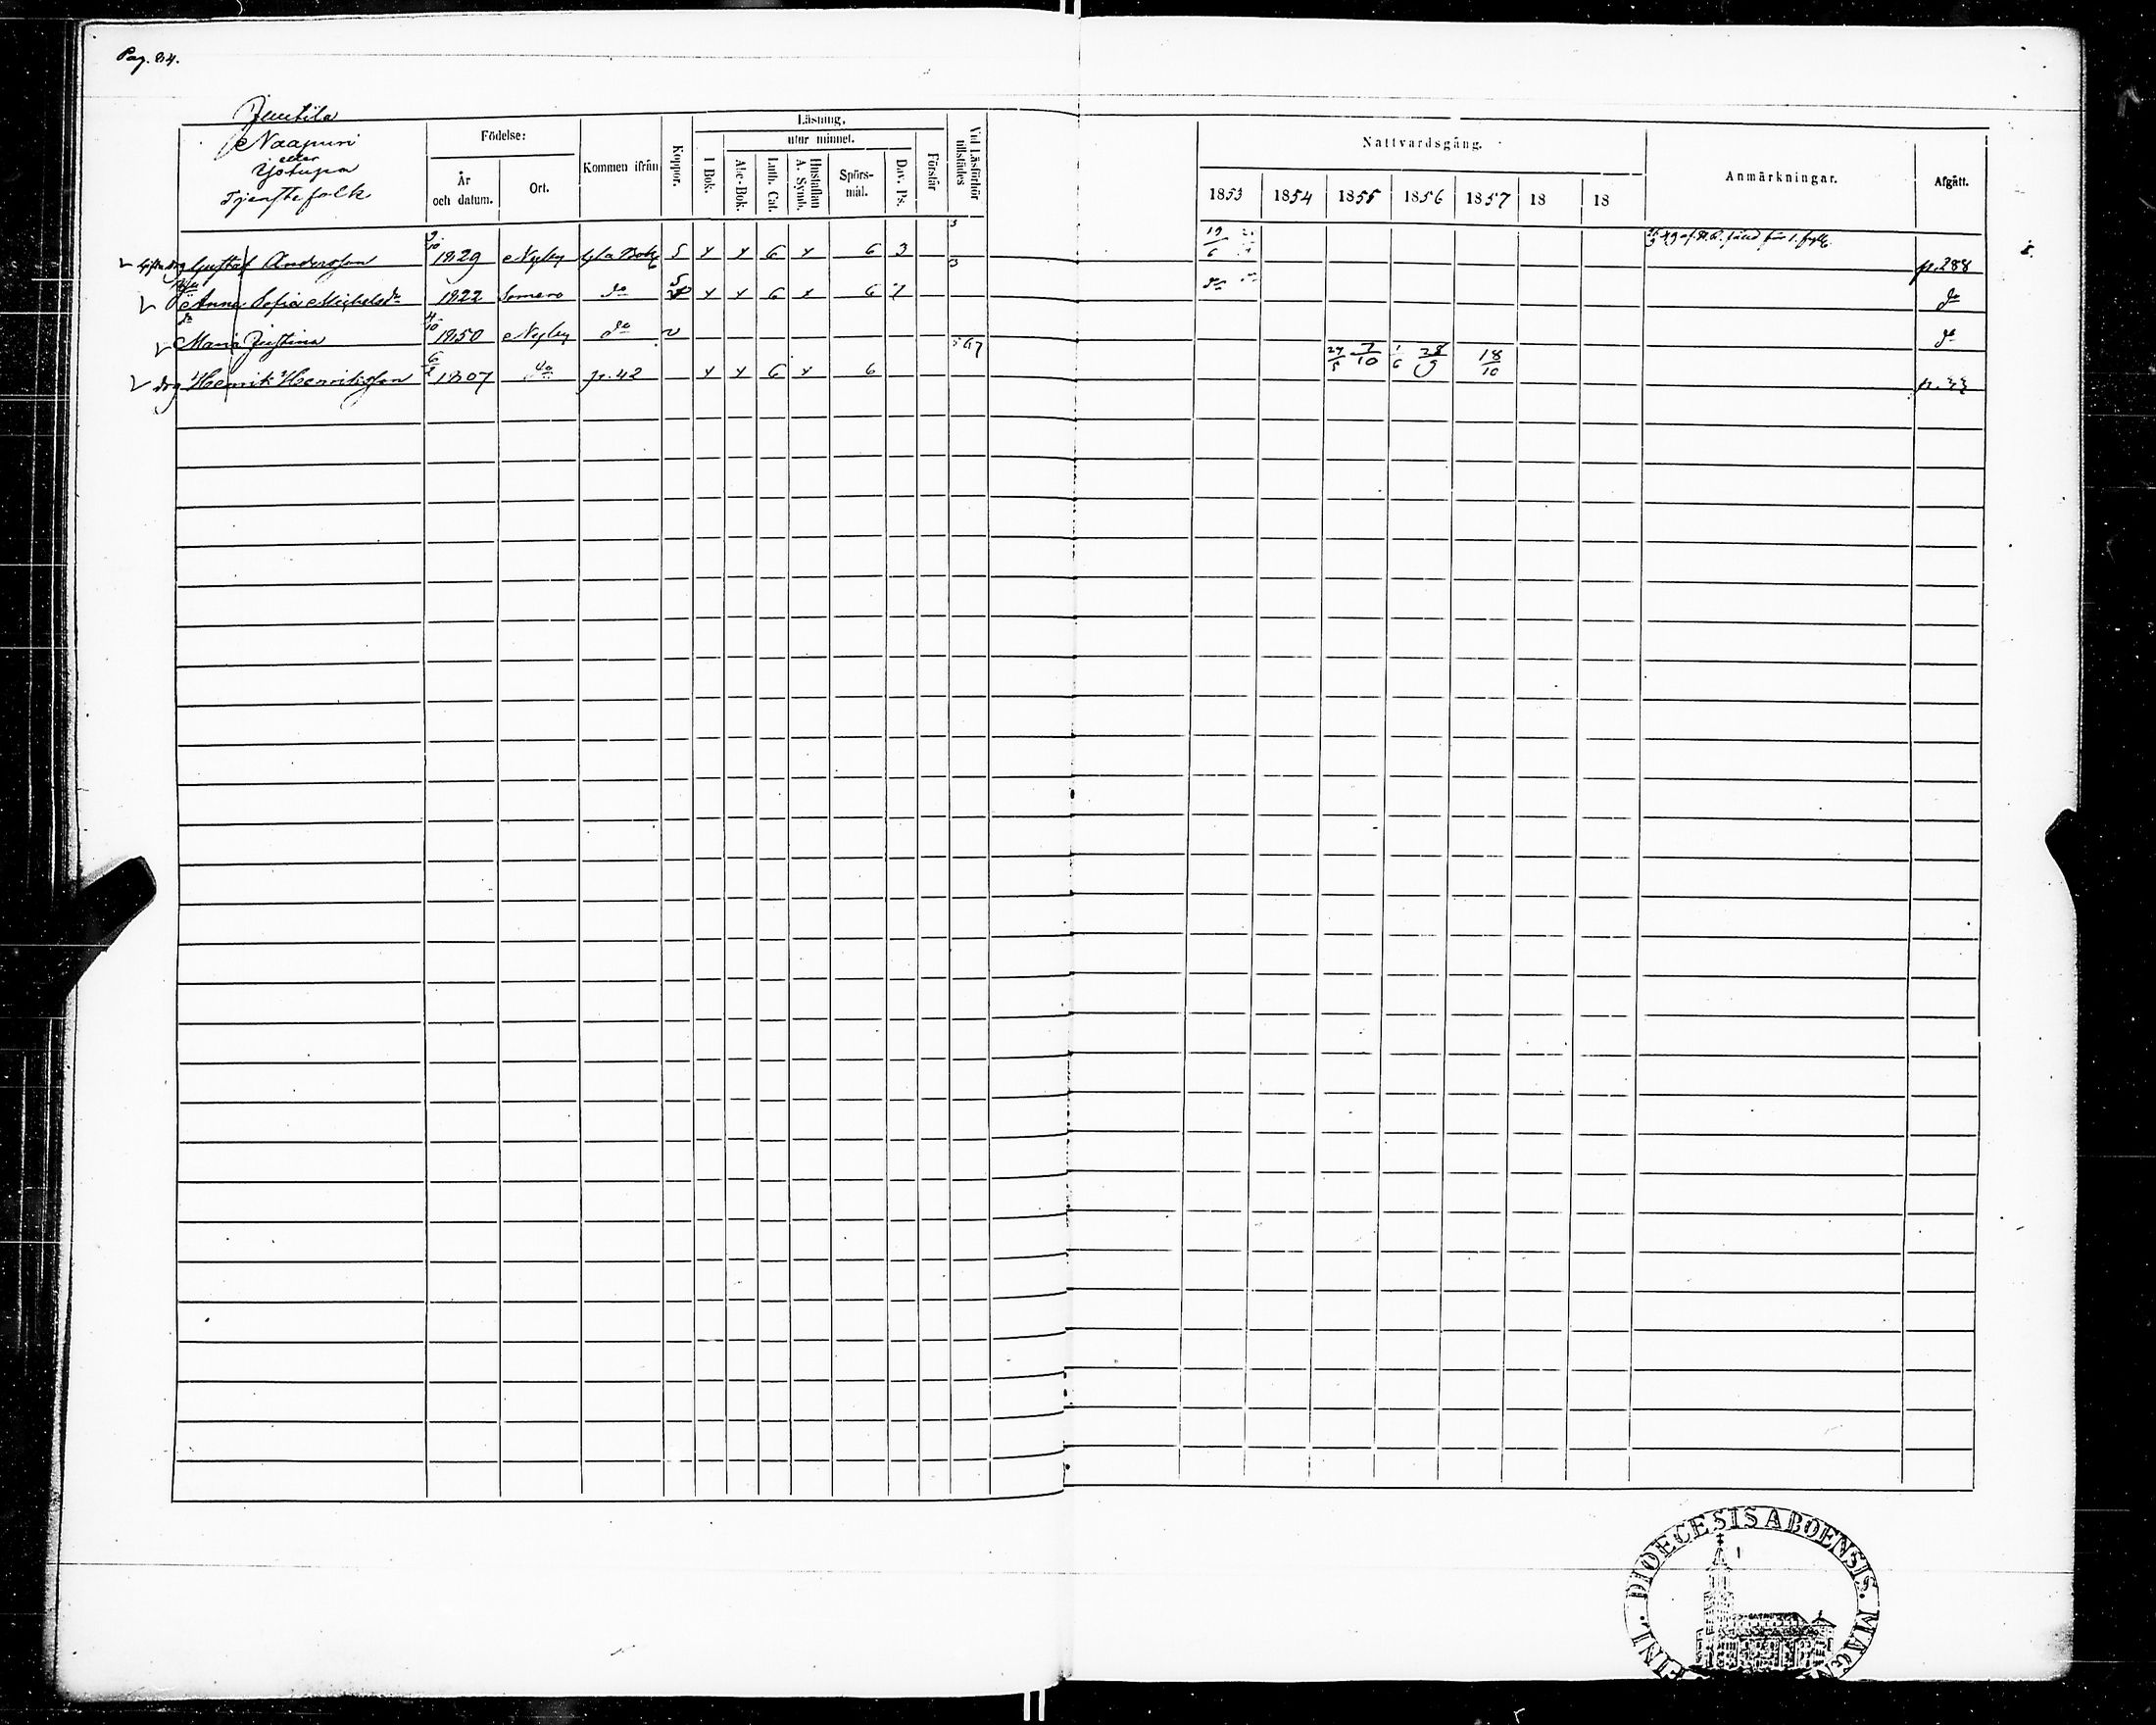 Pag. 84.
Junttila
Naapuri
eller
Yötupa
Tjenstefolk
Födelse:
År och datum.
Ort.
Kommen ifrån
Koppor.
Läsning,
I Bok.
utur minnet.
Abc-Bok.
Luth. Cat.
Hustaflan A. Symb.
Spörs-mål.
Dav. Ps.
Förstår
Vid Läsförhör tillstädes
Nattvardsgång.
1853 1854 1855 1856 1857 18 18
Anmärkningar.
Afgått.
drg Gustaf Andersson 9/10 1829 Nyby Gla Bok S x x 6 x 6 3 3 19/6 p. 288
Anna Sofia Michelsdr 1822 Somero do x x 6 x 6 7 3 do do
Maria Justina 4/10 1850 Nyby do v do
drg Henrik Henriksson 6/2 1807 do p. 42 x x 6 x 6 567 27/5 7/10 1/6 28/9 18/10 p.
DIOECESIS ABOENSIS. MAGN